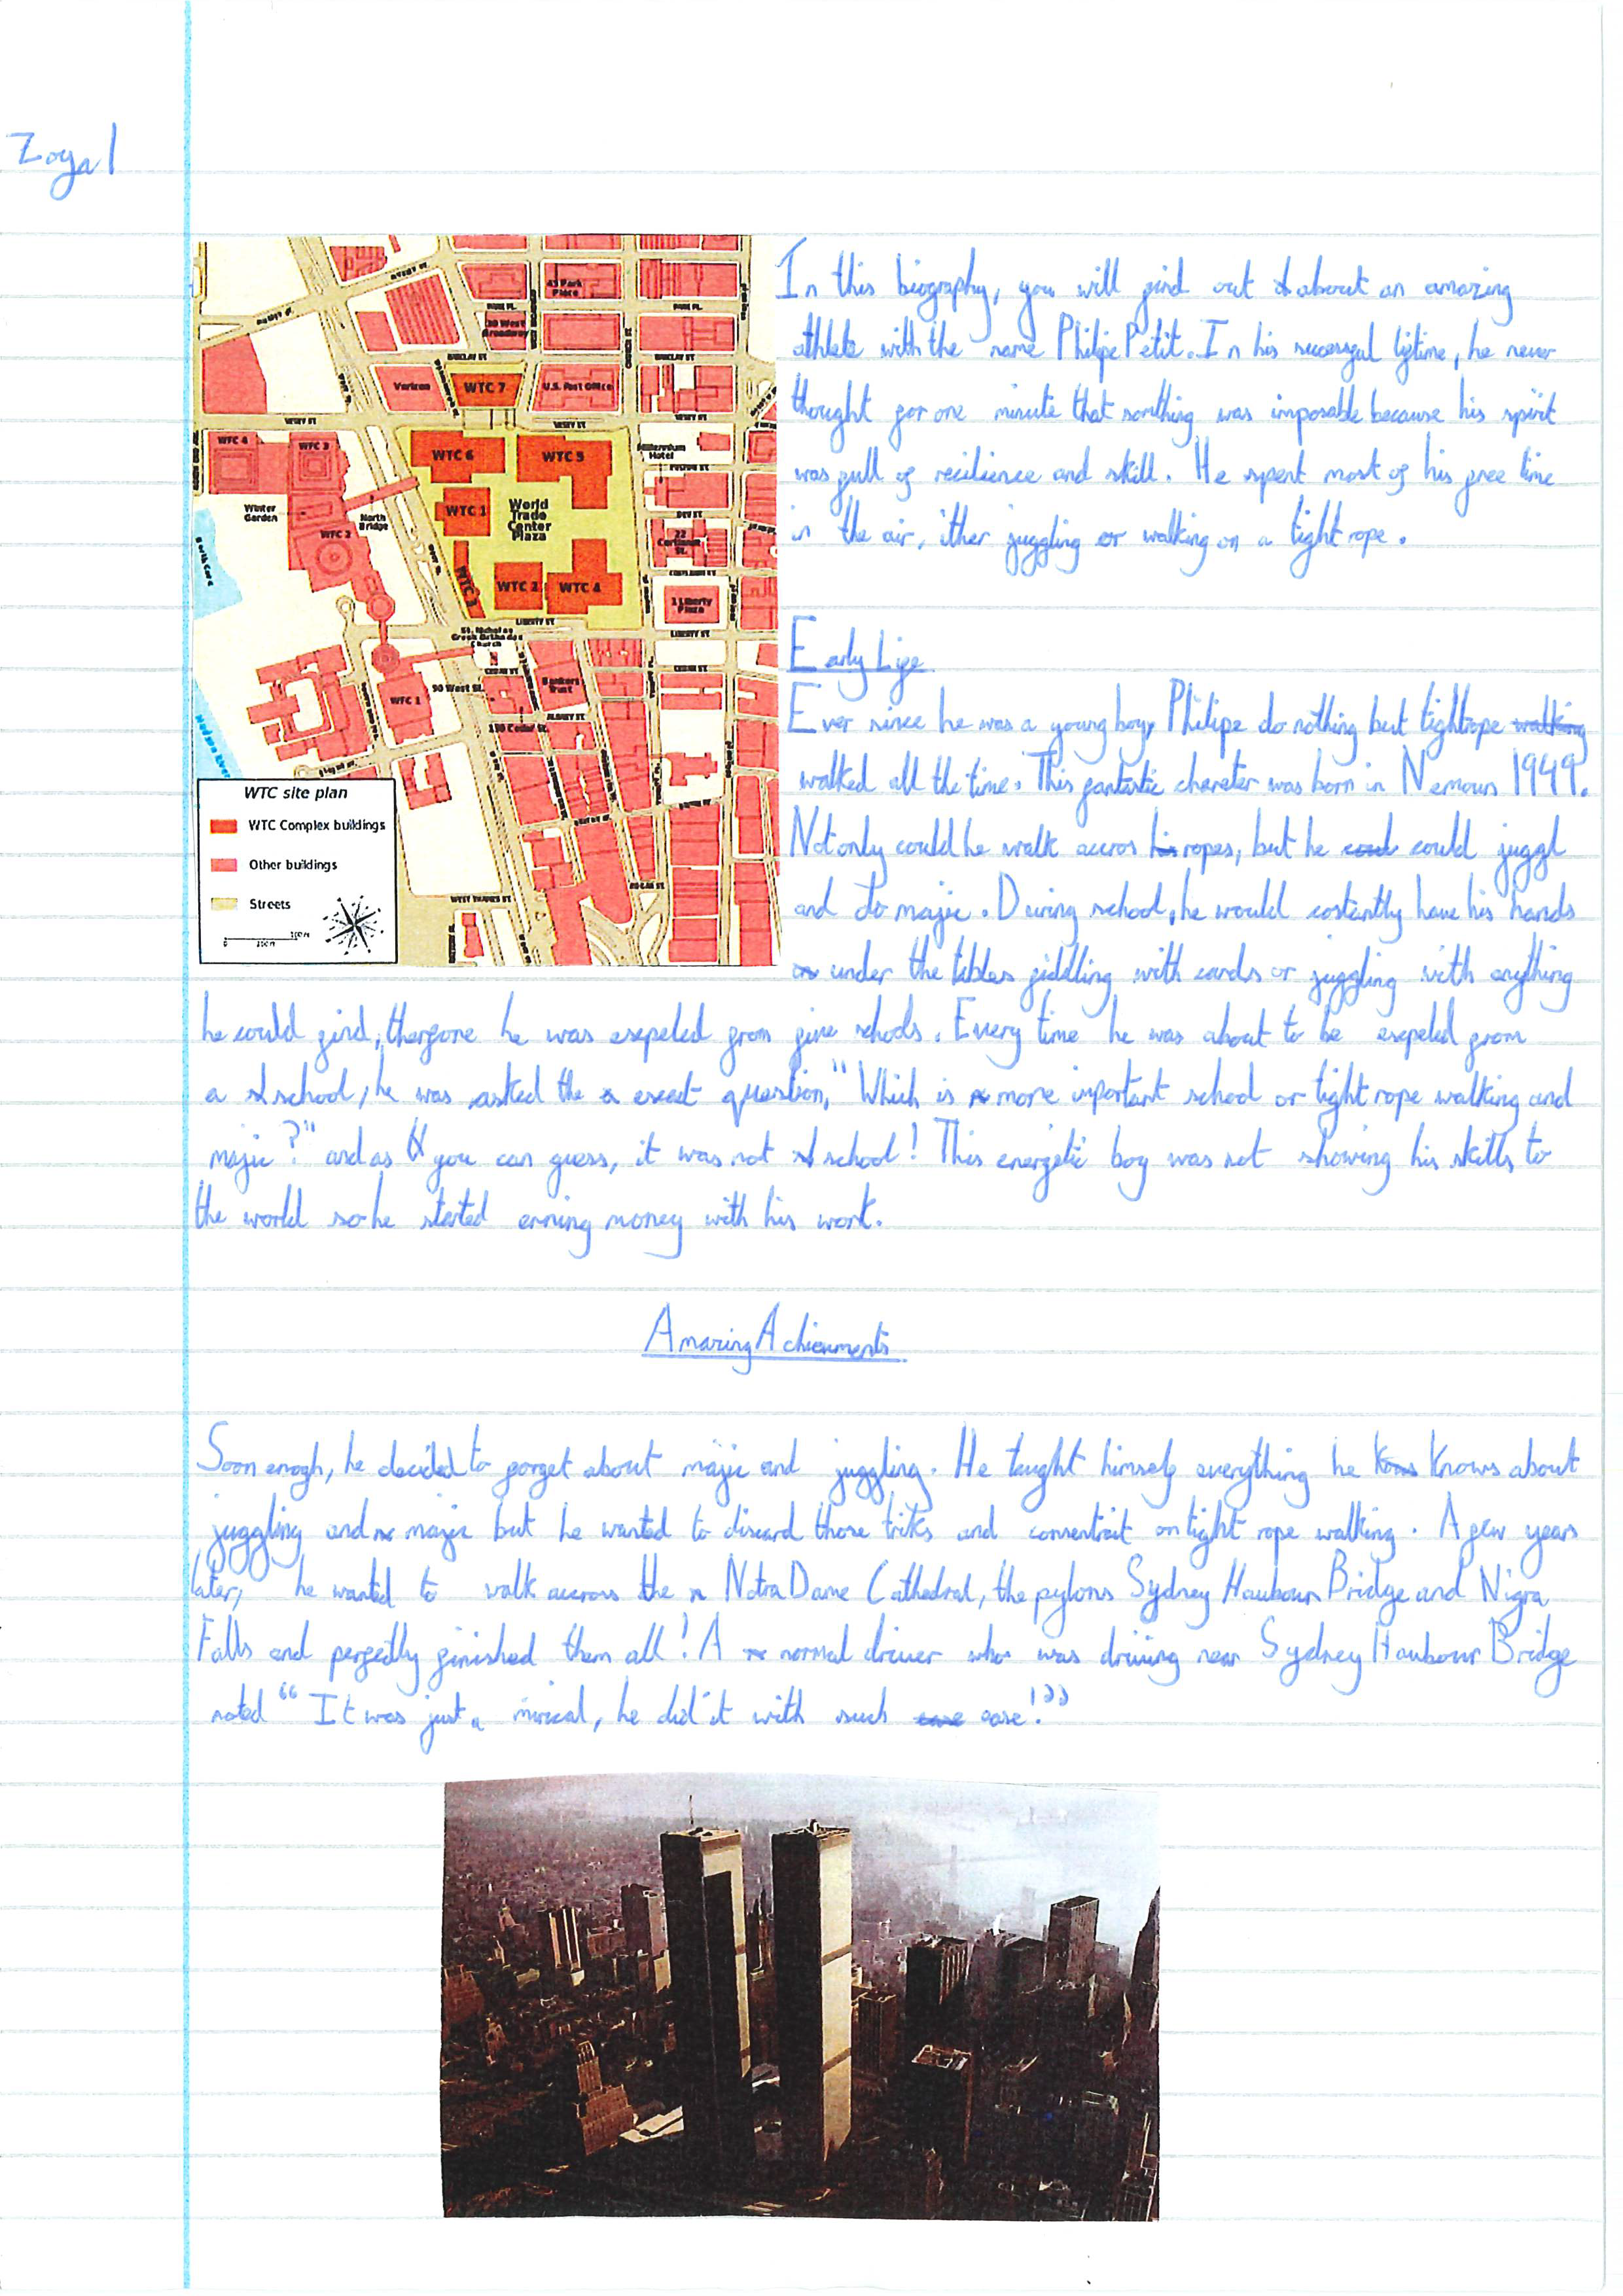 Zoya 1
In this biography, you will find out about an amazing
athlete with the name Philipe Petit. In his successful liftime, he never
thought for one minute that somthing was imposable because his spirit
was full of recilience and skill. He spent most of his free time
in the air, ither juggling or walking on a tight rope.
Early Life
Ever since he was a young boy, Philipe do nothing but tightrope walking
walked all the time. This fantastic charater was born in Nemours 1949.
Not only could he walk accros his ropes, but he coud could juggl
and do majic. During school, he would costantly have his hands
under the tables fiddling with cards or juggling with anything
he could find, therfore he was exepeled from five schools. Every time he was about to be exepeled from
a school, he was asked the exect question, "Which is more important school or tight rope walking and
majic?" and as you can guess, it was not school! This energetic boy was not showing his skills to
the world so he started erning money with his work.
Amazing Achievments
Soon enogh, he decided to forget about majic and juggling. He taught himself everything he knows about
juggling and majic but he wanted to discard those triks and consentrait on tight rope walking. A few years
later, he wanted to walk accross the Notra Dame Cathedral, the pylons Sydney Haubour Bridge and Nigra
Falls and perfectly finished them all! A normal driver who was driving near Sydney Haubour Bridge
noted "It was just a mirical, he did it with such ease!"
WTC 7
Verizon
U.S. Post Office
45 Park Place
30 West Broadway
PARK PL.
BARCLAY ST.
VESEY ST.
WFC 4
WFC 3
WTC 6
WTC 5
Millennium Hotel
Winter Garden
North Bridge
WTC 1
World Trade Center Plaza
WFC 2
DEY ST.
22 Cortlandt St.
WTC 3
WTC 2
WTC 4
1 Liberty Plaza
LIBERTY ST.
St. Nicholas Greek Orthodox Church
CEDAR ST.
90 West St.
Bankers Trust
WFC 1
ALBANY ST.
130 Cedar St.
WEST THAMES ST.
EDGAR ST.
WTC site plan
WTC Complex buildings
Other buildings
Streets